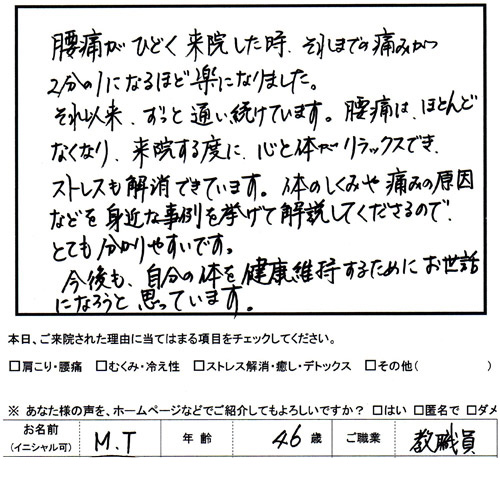 腰痛がひどく来院した時、それまでの痛みが
2分の1になるほど楽になりました。
それ以来、ずっと通い続けています。腰痛は、ほとんど
なくなり、来院する度に、心と体がリラックスでき、
ストレスも解消できています。体のしくみや痛みの原因
などを身近な事例を挙げて解説してくださるので、
とても分かりやすいです。
今後も、自分の体を健康維持するためにお世話
になろうと思っています。
本日、ご来院された理由に当てはまる項目をチェックしてください。
□肩こり・腰痛 □むくみ・冷え性 □ストレス解消・癒し・デトックス □その他( )
※ あなた様の声を、ホームページなどでご紹介してもよろしいですか？ □はい □匿名で □ダメ
お名前 (イニシャル可) M.T 年齢 46歳 ご職業 教職員